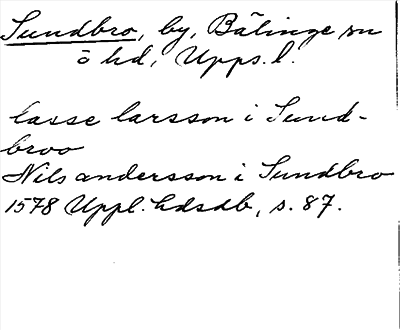 Sundbro, by, Bälinge sn
ö hd, Upps. l.
lasse larsson i Sund-
broo
Nils andersson i Sundbro
1578 Uppl. hdsdb, s. 87.